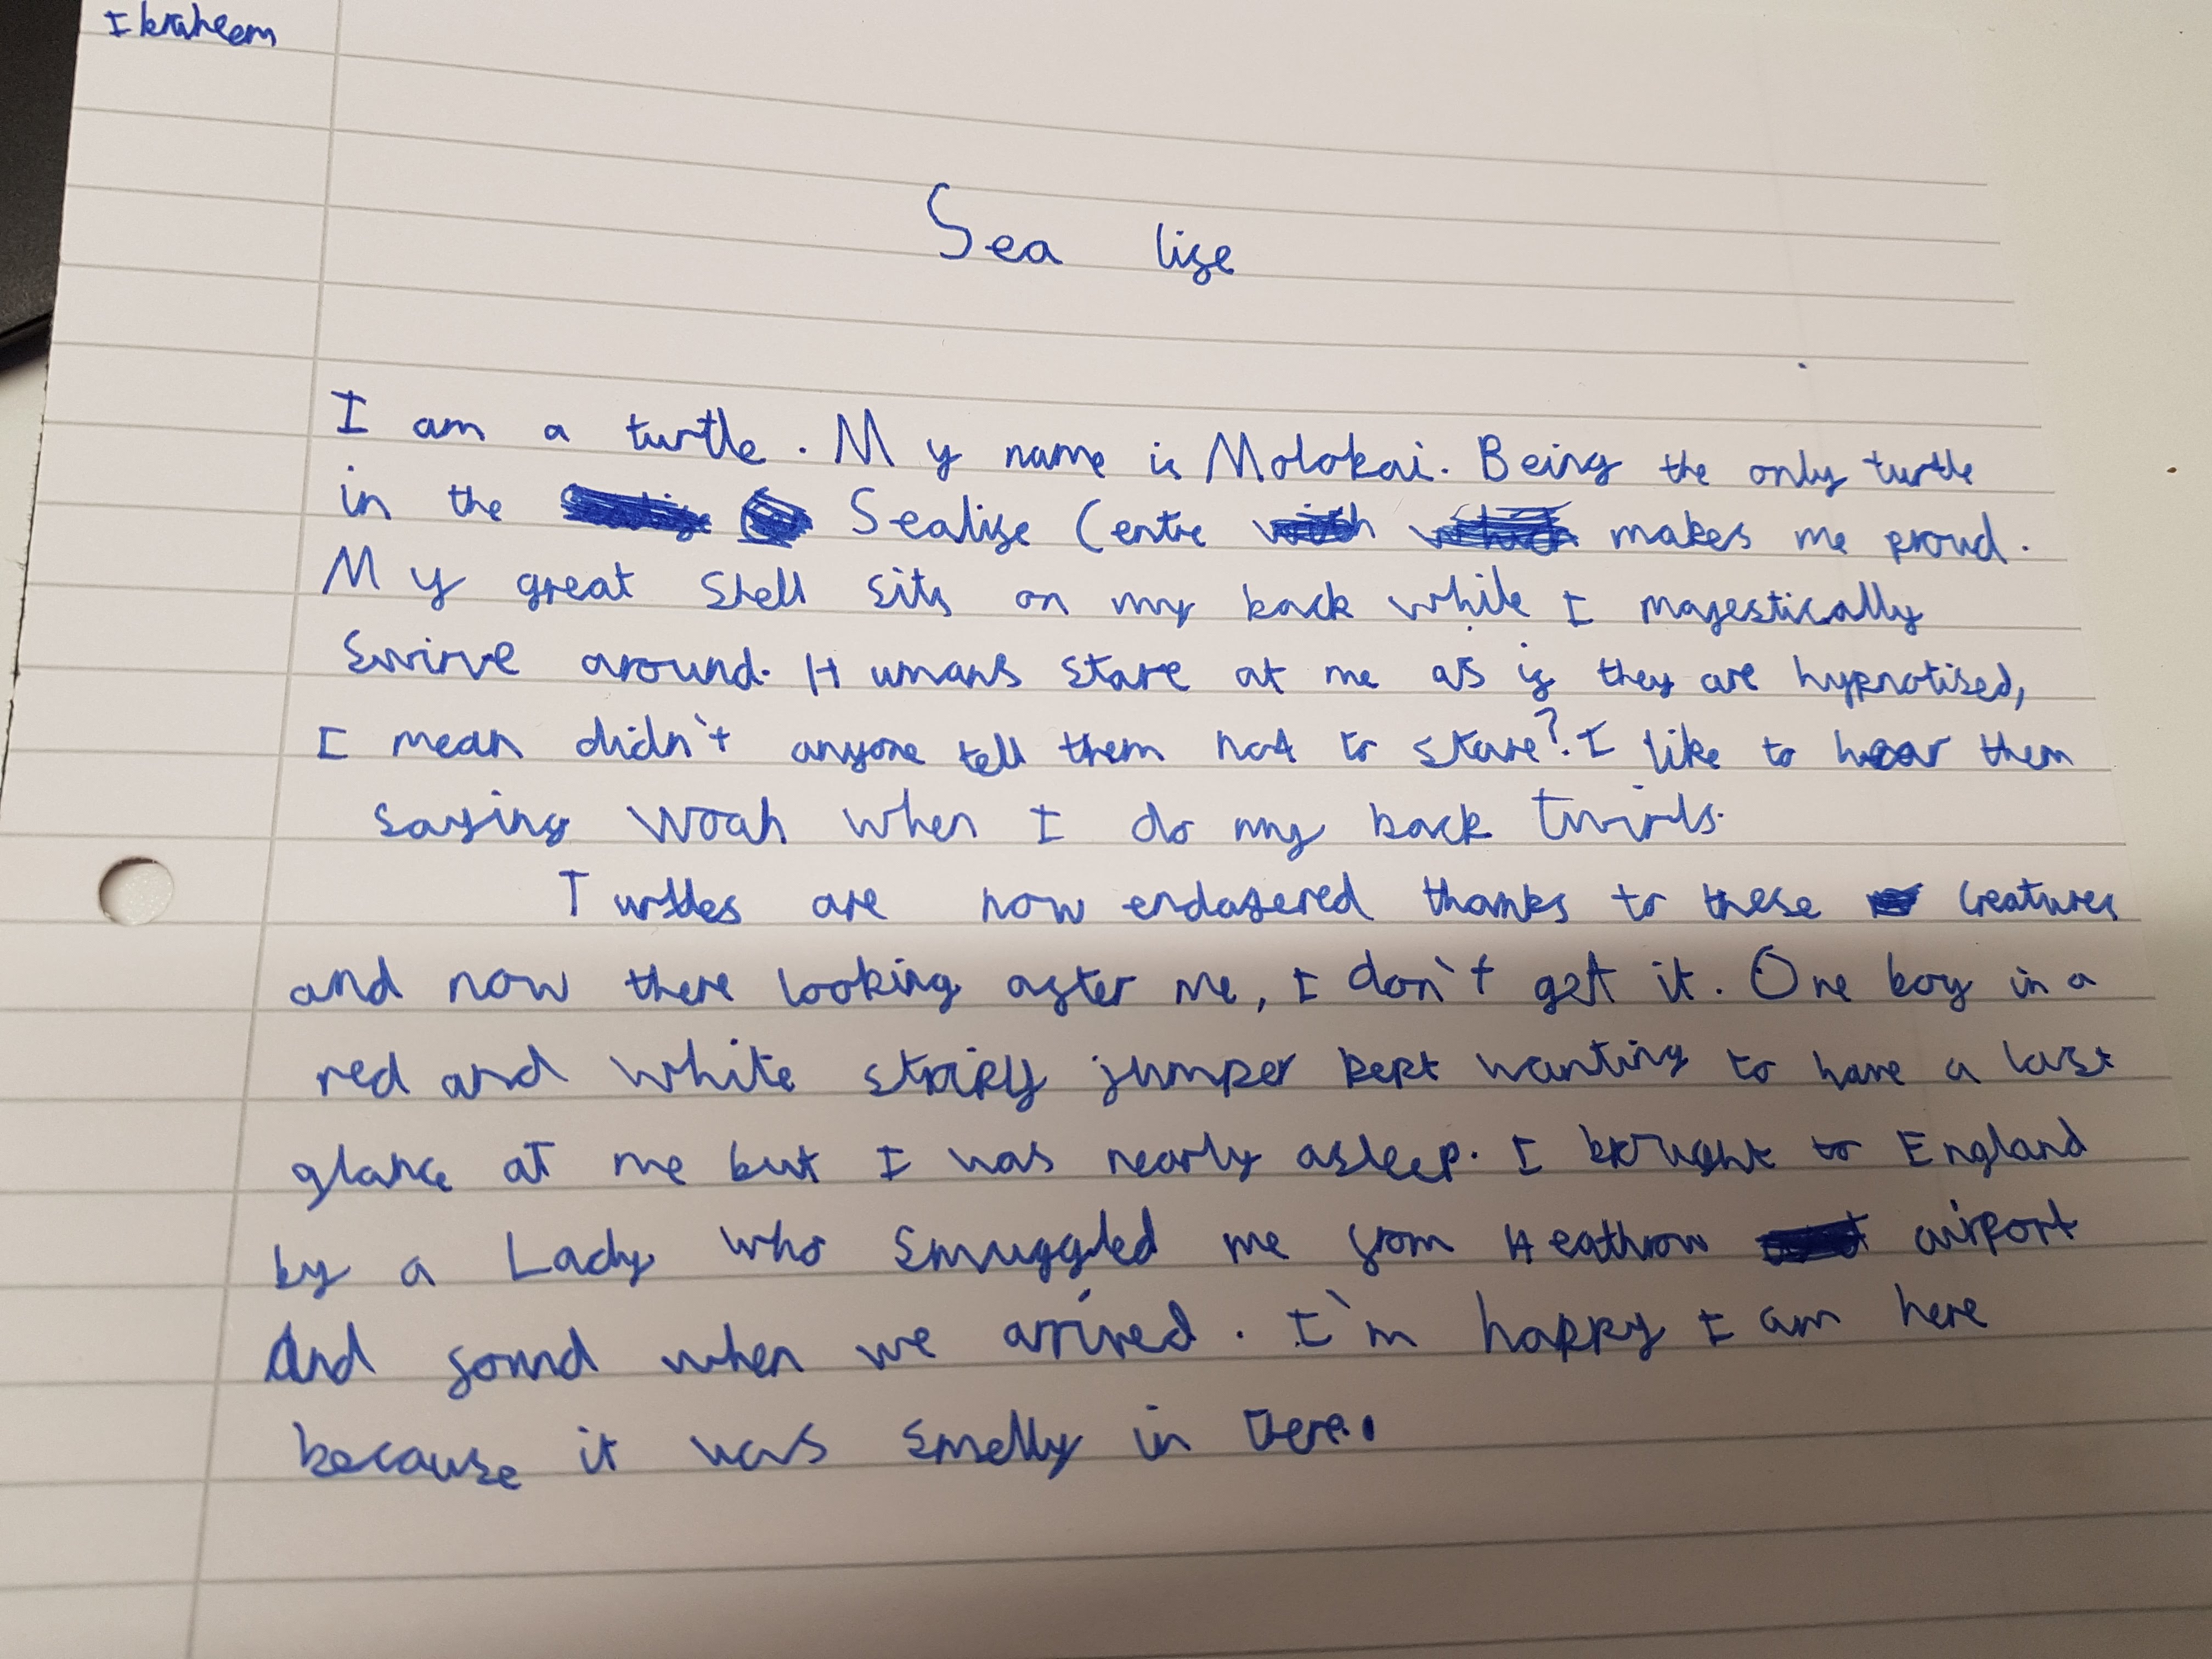 Ibraheem
Sea life
I am a turtle. My name is Molokai. Being the only turtle
in the Sealife Centre makes me proud.
My great shell sits on my back while I majestically
swirve around. Humans stare at me as if they are hypnotised,
I mean didn't anyone tell them not to stare? I like to hear them
saying Woah when I do my back twirls.
Turtles are now endagered thanks to these creatures
and now there looking after me, I don't get it. One boy in a
red and white stripy jumper kept wanting to have a last
glance at me but I was nearly asleep. I brought to England
by a Lady who smuggled me from Heathrow airport
And found when we arrived. I'm happy I am here
because it was smelly in there.